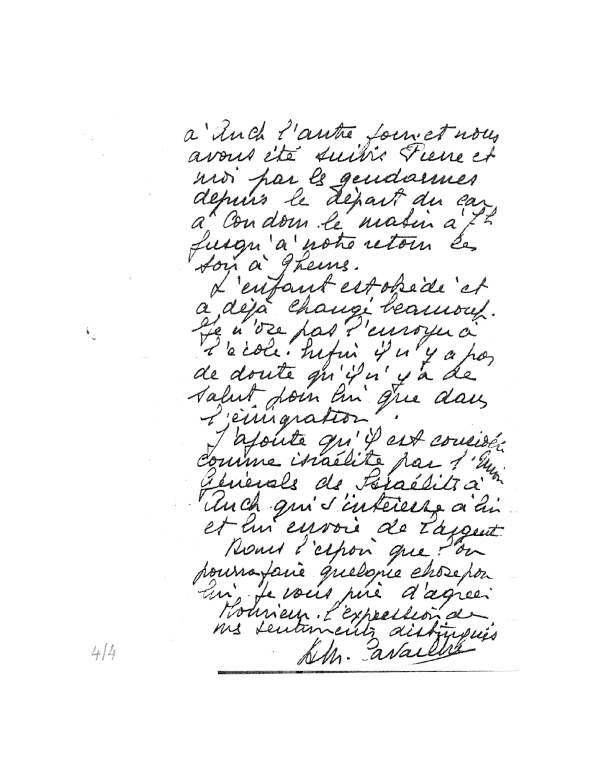 à Auch l'autre jour et nous
avons été suivis Pierre et
moi par les gendarmes
depuis le départ du car
à Condom le matin à 7h
jusqu'à notre retour le
soir à 9 heures.
L'enfant est obsédé et
a déjà changé beaucoup.
Je n'ose pas l'envoyer à
l'école. Enfin il n'y a pas
de doute qu'il n'y a de
salut pour lui que dans
l'émigration.
J'ajoute qu'il est considéré
comme israélite par l'Union
Générale des Israélites à
Auch qui s'intéresse à lui
et lui envoie de l'argent
Dans l'espoir que l'on
pourra faire quelque chose pour
lui, je vous prie d'agréer
Monsieur l'expression de
mes sentiments distingués
4/4